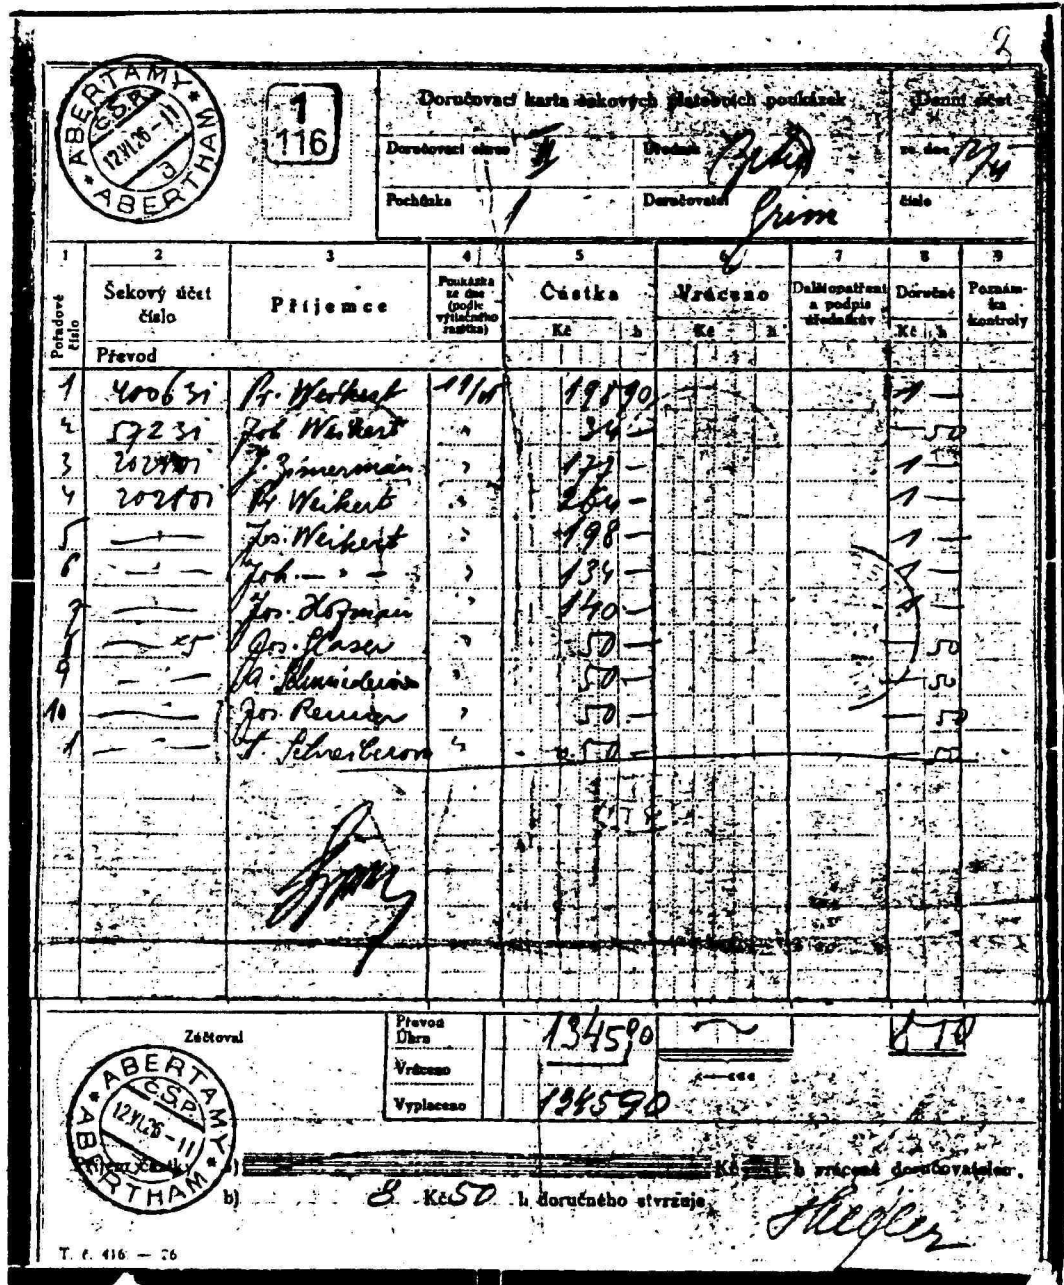 2
ABERTAMY * ABERTHAM *
Č.S.P.
12.XI.26-11
a
1
116
Doručovací karta šekových platebních poukázek
Denní účet
Doručovací okres II
Úředník
ze dne 12/XI
Pochůzka 1
Doručovatel Grim
číslo
1 2 3 4 5 6 7 8 9
Pořadové číslo
Šekový účet číslo
Příjemce
Poukázka ze dne (podle výtlačného razítka)
Částka
Kč h
Vráceno
Kč h
Další opatření a podpis úředníkův
Doručné
Kč h
Poznámka kontroly
Převod
1 400631 Fr. Weikert 198 90 1 —
2 57231 Joh Weikert " 34 — — 50
3 J. Zimerman " 177 — 1 —
4 202801 Fr. Weikert " 264 — 1 —
5 — " — Jos. Weikert " 198 — 1 —
6 — " — Joh. — " — " 134 — 1 —
7 — " — Jos. Hofman " 140 — 1 —
8 — " — Jos. Glaser " 50 — — 50
9 — " — " 50 — — 50
10 — " — Jos. " 50 — — 50
1 — " — Schreiberová " 50 — — 50
Zúčtoval
Převod
Úhrn 1345 90 8 50
Vráceno
Vyplaceno 1345 90
ABERTAMY * ABERTHAM *
Č.S.P.
12.XI.26-11
Příjem částky a) Kč h vrácené doručovatelem.
b) 8 Kč 50 h doručného stvrzuje
T. č. 416 — 26